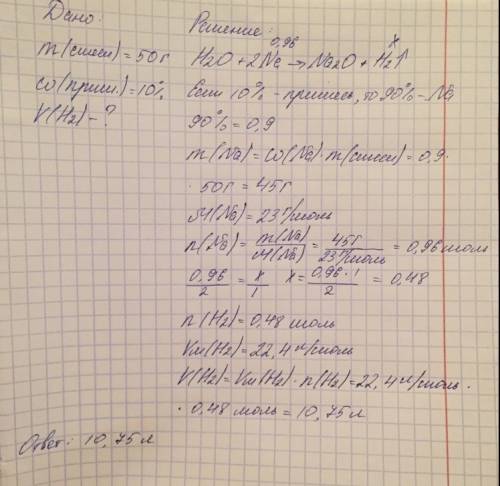 Дано:
m(смеси)=50г
ω(прим.)=10%
V(H2)-?
Решение:
0,96 x
H2O + 2Na → Na2O + H2↑
Если 10% - примесь, то 90% - Na
90% = 0,9
m(Na)=ω(Na)·m(смеси)=0,9·
·50г=45г
M(Na)=23г/моль
n(Na)=m(Na)/M(Na)=45г/23г/моль=0,96моль
0,96/2=x/1 x=0,96·1/2=0,48
n(H2)=0,48 моль
Vm(H2)=22,4л/моль
V(H2)=Vm(H2)·n(H2)=22,4л/моль·
·0,48 моль=10,75л
Ответ: 10,75л